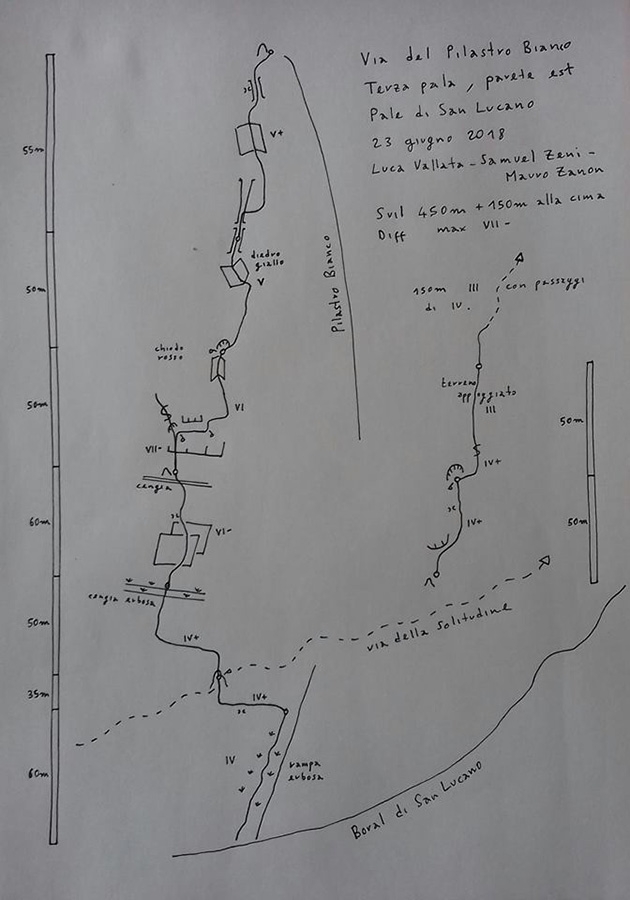 Via del Pilastro Bianco
Terza pala, parete est
Pale di San Lucano
23 giugno 2018
Luca Vallata - Samuel Zeni -
Mauro Zanon
Svil 450m + 150m alla cima
Diff max VII-
55m
V+
Pilastro Bianco
diedro
giallo
V
50m
chiodo
rosso
50m
VI
VII-
cengia
60m
VI-
cengia erbosa
50m
IV+
35m
IV+
60m
IV
rampa
erbosa
via della Solitudine
Boral di San Lucano
150m III con passaggi
di IV.
terreno
appoggiato
III
50m
IV+
50m
IV+